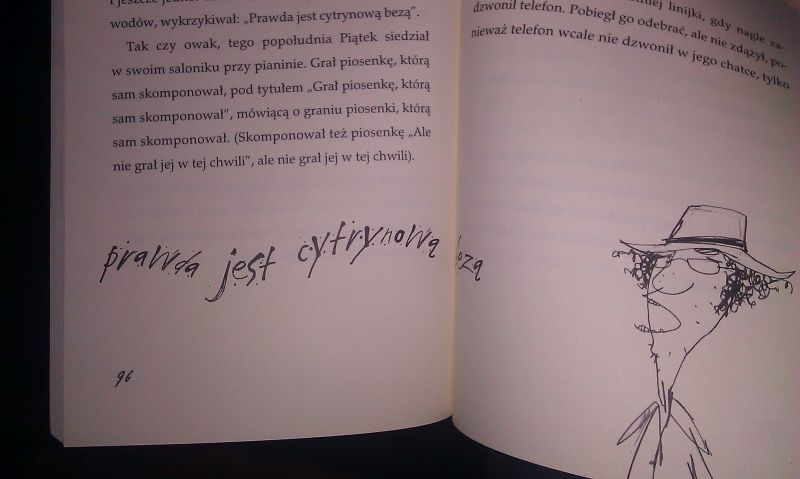 wodów, wykrzykiwał: „Prawda jest cytrynową bezą”.
Tak czy owak, tego popołudnia Piątek siedział
w swoim saloniku przy pianinie. Grał piosenkę, którą
sam skomponował, pod tytułem „Grał piosenkę, którą
sam skomponował”, mówiącą o graniu piosenki, którą
sam skomponował. (Skomponował też piosenkę „Ale
nie grał jej w tej chwili”, ale nie grał jej w tej chwili).
prawda jest cytrynową bezą
96
linijki, gdy nagle za-
dzwonił telefon. Pobiegł go odebrać, ale nie zdążył, po-
nieważ telefon wcale nie dzwonił w jego chatce, tylko